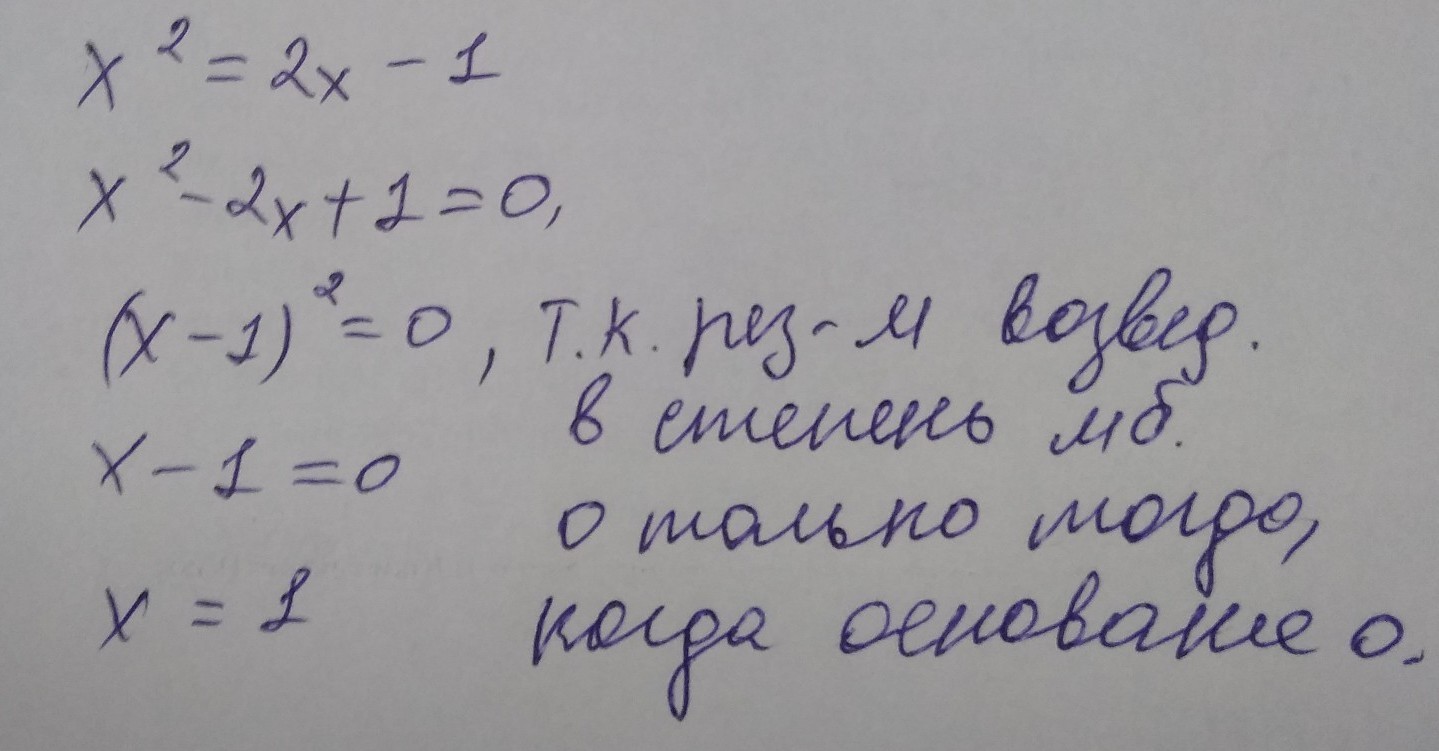 x² = 2x - 1
x² - 2x + 1 = 0,
(x - 1)² = 0, т.к. рез-м возвед.
в степень мб.
x - 1 = 0
0 только тогда,
x = 1 когда основание 0.